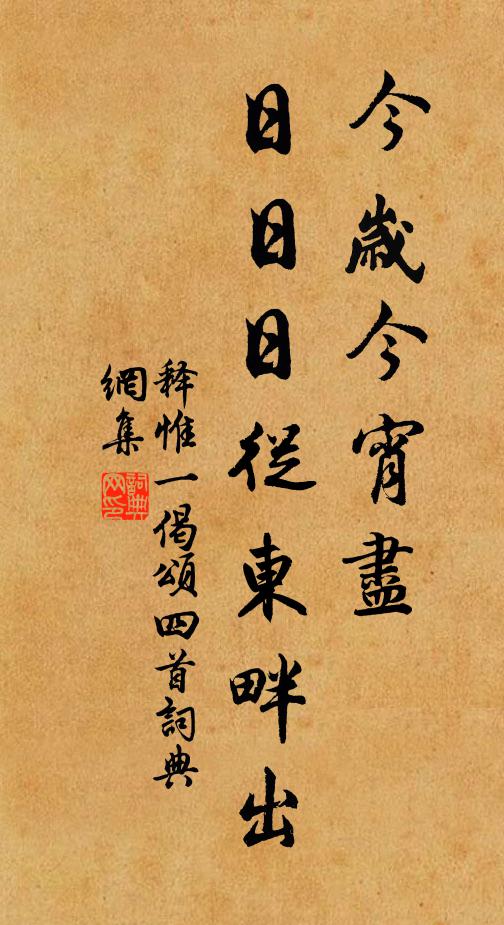 今歲今宵盡
日日日從東畔出
釋惟一偈頌四首詞典
網集
詞典
网印